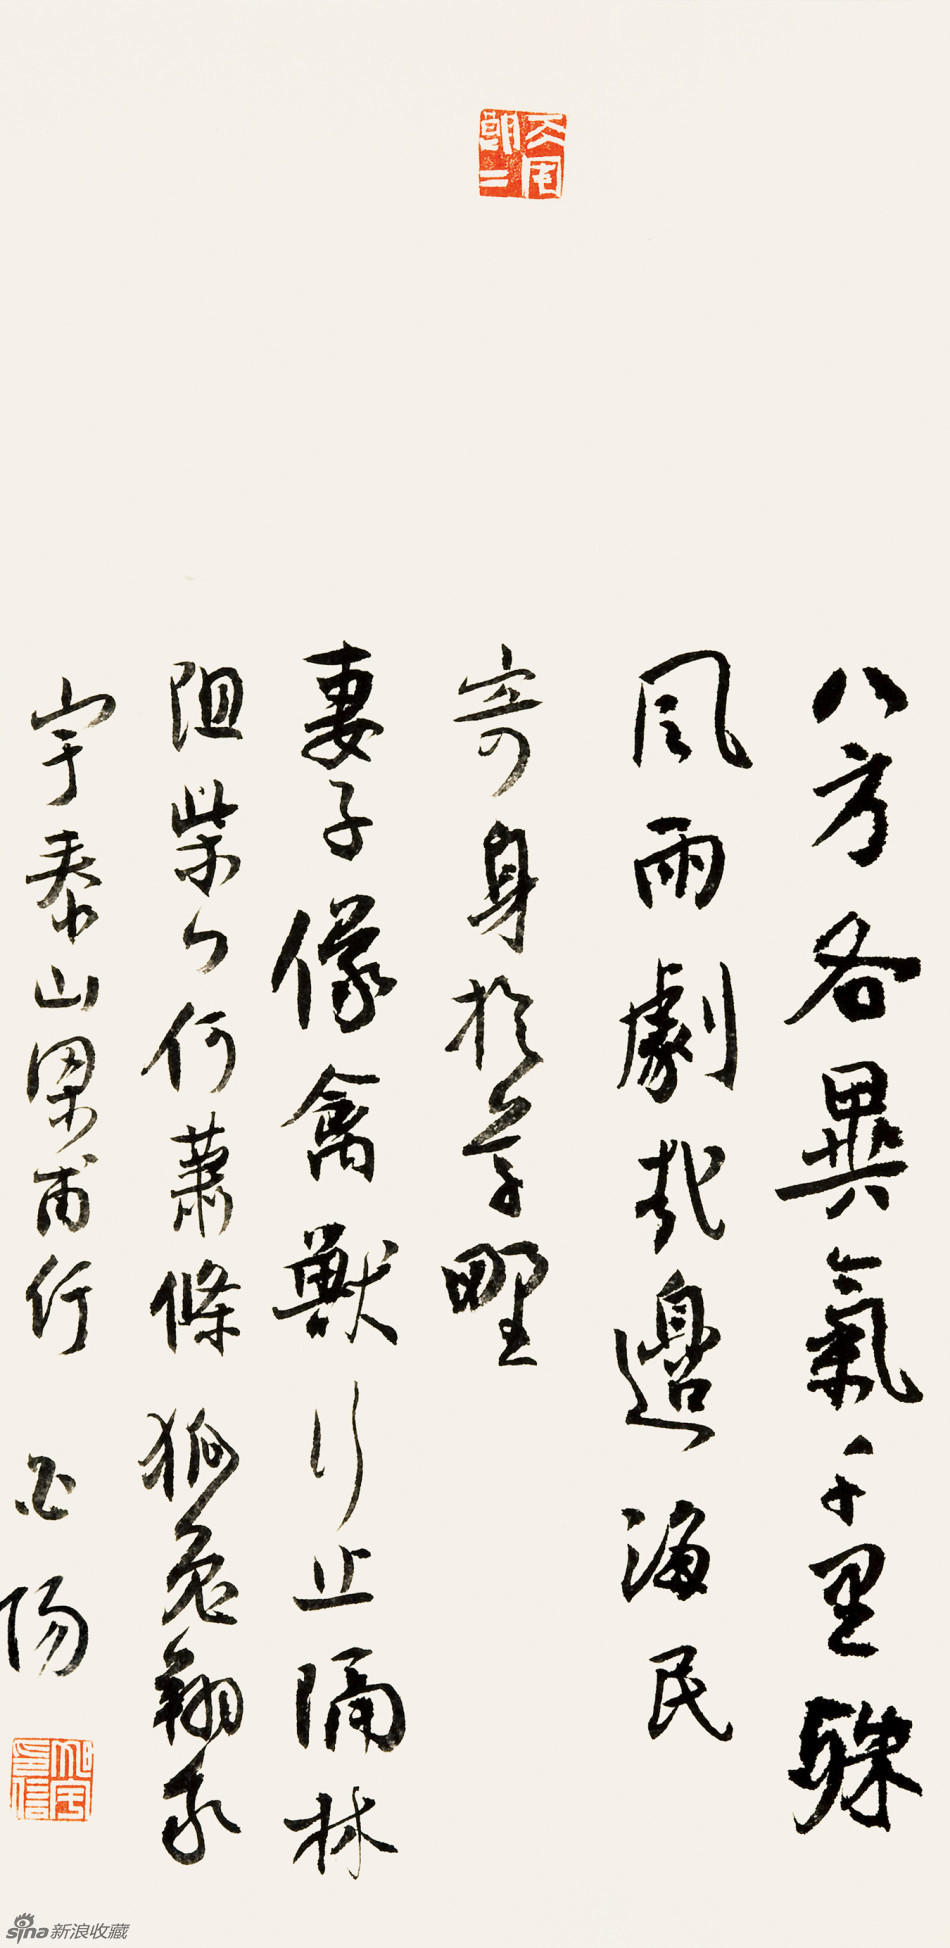 八方各異氣千里殊
風雨劇哉邊海民
寄身於草野
妻子像禽獸行止隔林
阻柴門何蕭條狐兔翔我
宇泰山梁甫行 陽
sina新浪收藏